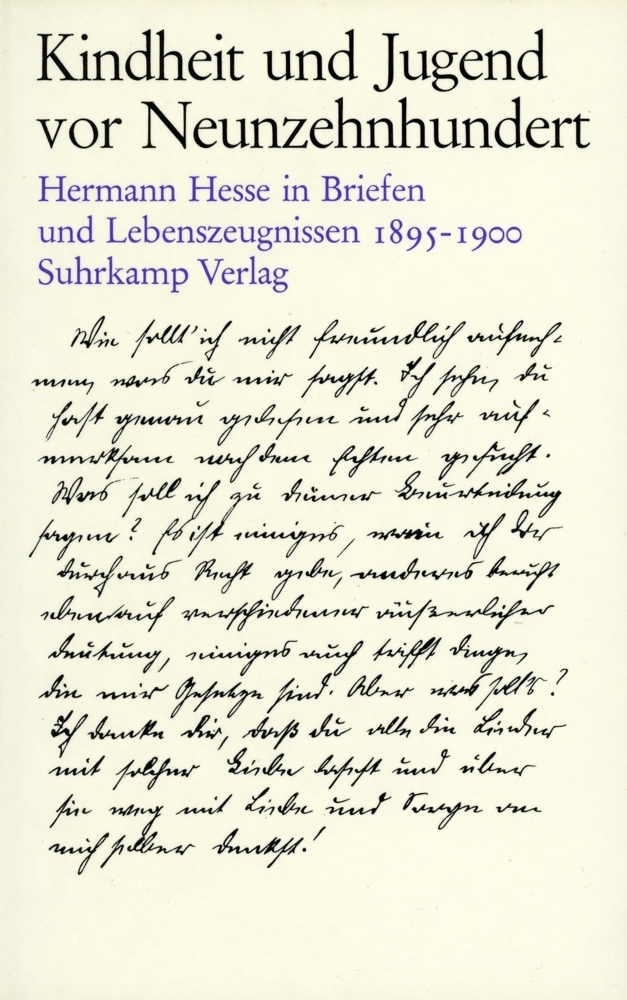 Kindheit und Jugend
vor Neunzehnhundert
Hermann Hesse in Briefen
und Lebenszeugnissen 1895-1900
Suhrkamp Verlag
Wie sollt' ich nicht freundlich aufneh-
men, was du mir sagst. Ich sehe, du
hast genau gelesen und sehr auf-
merksam nach dem Echten gesucht.
Was soll ich zu deiner Beurteilung
sagen? Es ist einiges, worin ich dir
durchaus Recht gebe, anderes beruht
eben auf verschiedener äußerlicher
deutung, einiges auch trifft dinge,
die mir Gesetze sind. Aber was soll's?
Ich danke dir, daß du alle die Lieder
mit solcher Liebe lasest und über
sie weg mit Liebe und Sorge an
mich selber denkst!